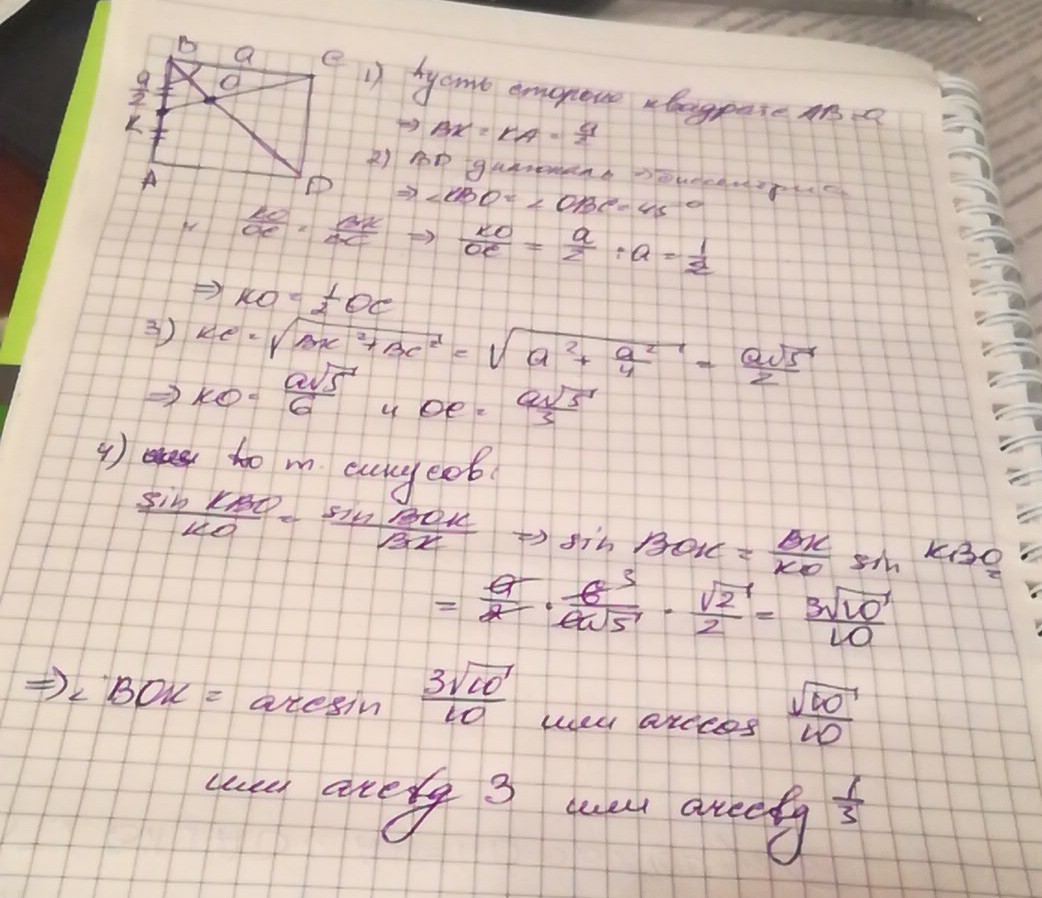 B a C
a/2 O
K
A D
1) Пусть сторона квадрата AB = a
⇒ BK = KA = a/2
2) BD диагональ ⇒ биссектриса
⇒ ∠KBO = ∠OBC = 45°
и KO/OC = BK/BC ⇒ KO/OC = a/2 : a = 1/2
⇒ KO = 1/2 OC
3) KC = √(BK² + BC²) = √(a² + a²/4) = a√5/2
⇒ KO = a√5/6 и OC = a√5/3
4) по т. синусов:
sin KBO/KO = sin BOK/BK ⇒ sin BOK = BK/KO sin KBO =
= a/2 · 6 3/a√5 · √2/2 = 3√10/10
⇒ ∠BOK = arcsin 3√10/10 или arccos √10/10
или arctg 3 или arcctg 1/3